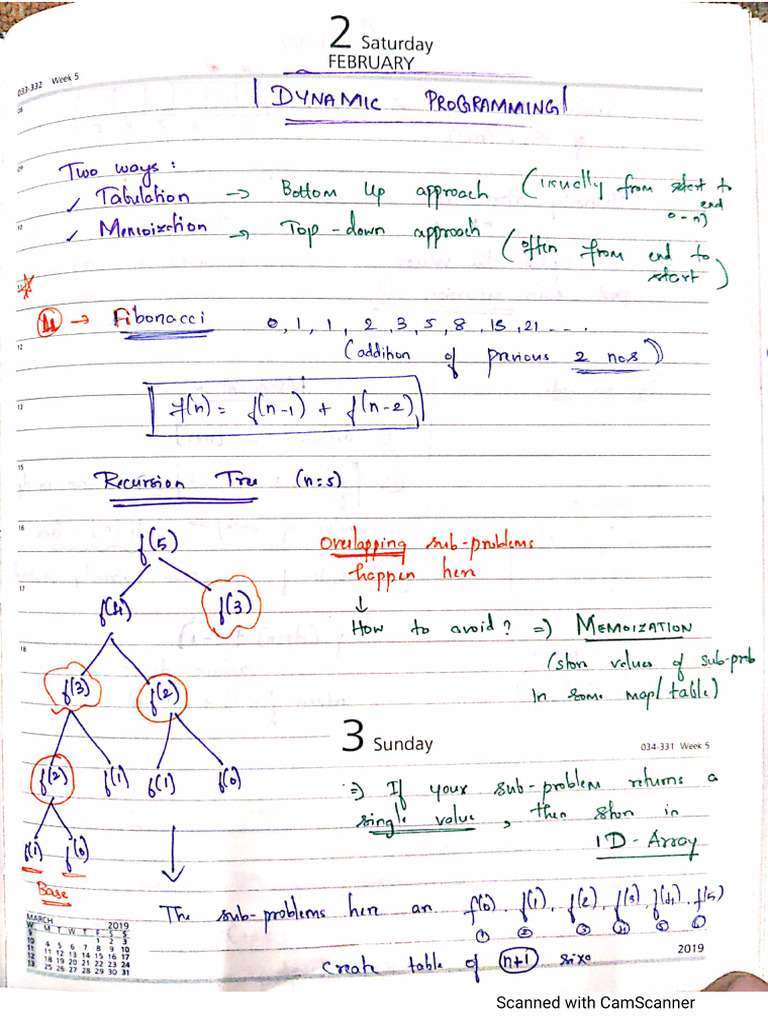 2 Saturday
FEBRUARY
033-332 Week 5
DYNAMIC PROGRAMMING
Two ways:
✓ Tabulation → Bottom Up approach (usually from start to end 0-n)
✓ Memoization → Top-down approach (often from end to start)
→ Fibonacci 0, 1, 1, 2, 3, 5, 8, 13, 21 ....
(addition of previous 2 nos)
f(n) = f(n-1) + f(n-2)
Recursion Tree (n=5)
f(5)
Overlapping sub-problems
happen here
f(4) f(3)
↓
How to avoid? => MEMOIZATION
(store values of sub-prob
in some map/table)
f(3) f(2)
3 Sunday 034-331 Week 5
f(2) f(1) f(1) f(0)
=> If your sub-problem returns a
single value, then store in
1D-Array
f(1) f(0)
Base
The sub-problems here are f(0), f(1), f(2), f(3), f(4), f(5)
1 2 3 4 5 6
Create table of n+1 size
MARCH 2019
W M T W T F S S
9 1 2 3
10 4 5 6 7 8 9 10
11 11 12 13 14 15 16 17
12 18 19 20 21 22 23 24
13 25 26 27 28 29 30 31
2019
Scanned with CamScanner